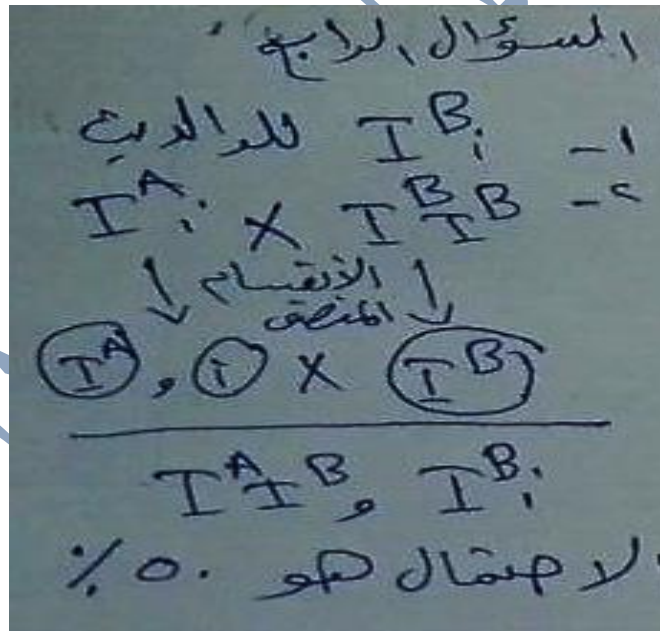 السؤال الرابع
١- I^B i للوالدين
٢- I^A i × I^B I^B
↓ الانقسام ↓
المنصف
I^A , i × I^B
I^A I^B , I^B i
الاحتمال هو ٥٠٪